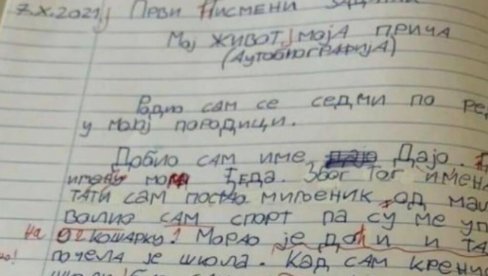 7.X.2021. Први писмени задатак
Мој живот, моја прича
(Аутобиографија)
Родио сам се седми по ред
у мојој породици.
Добио сам име Дајо.
имену мога ђеда. Због тог имена
тати сам постао миљеник од мал
Волио сам спорт па су ме уп
на кошарку. Морао је доћи и та
почела је школа. Кад сам крену